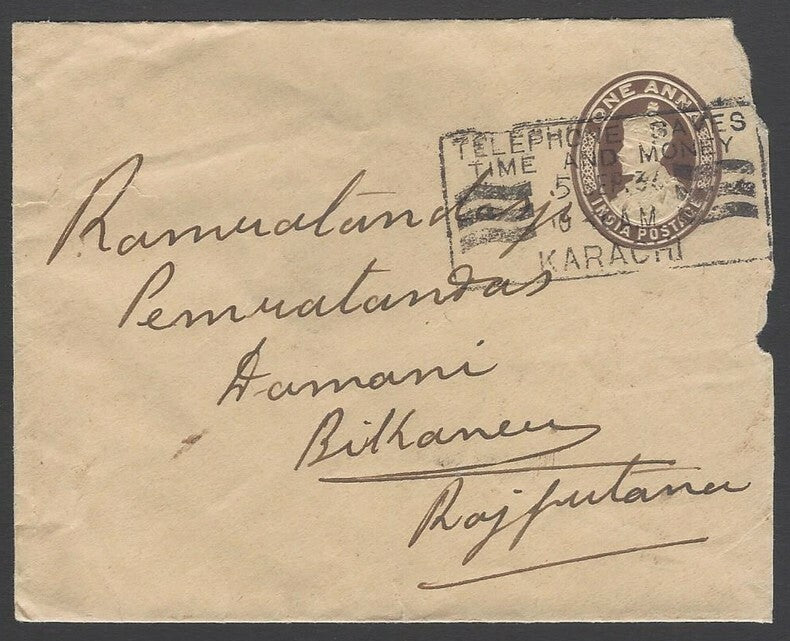 ONE ANNA
INDIA POSTAGE
TELEPHONE SAVES
TIME AND MONEY
5 34
AM
KARACHI
Ramratandasji
Pemratandas
Damani
Bikaneer
Rajputana